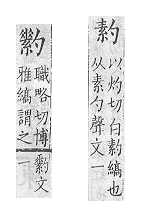 䋤
以灼切白䋤縞也
从素勺聲文一
職略切博
雅縞謂之
䋤文
一